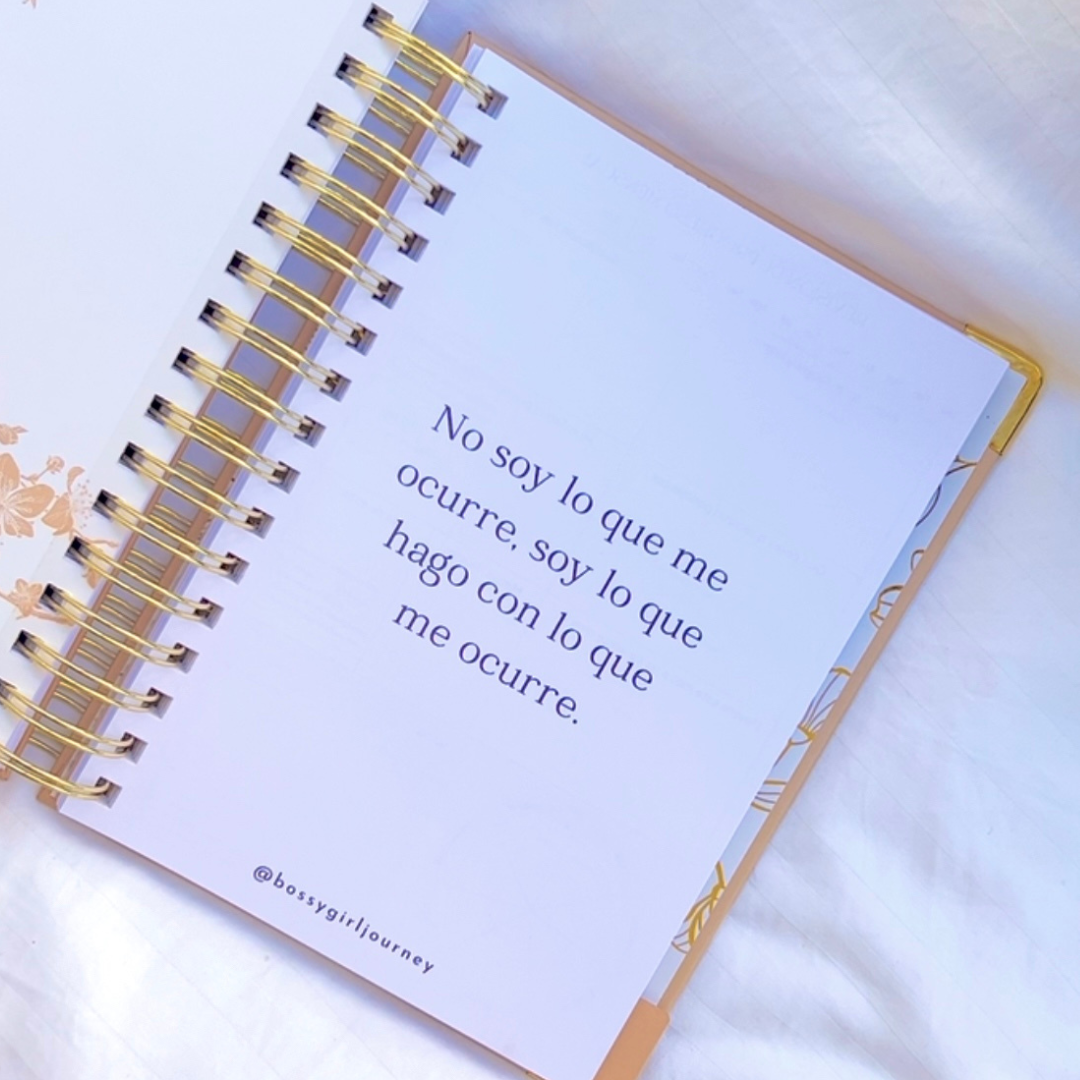 No soy lo que me
ocurre, soy lo que
hago con lo que
me ocurre.
@bossygirljourney